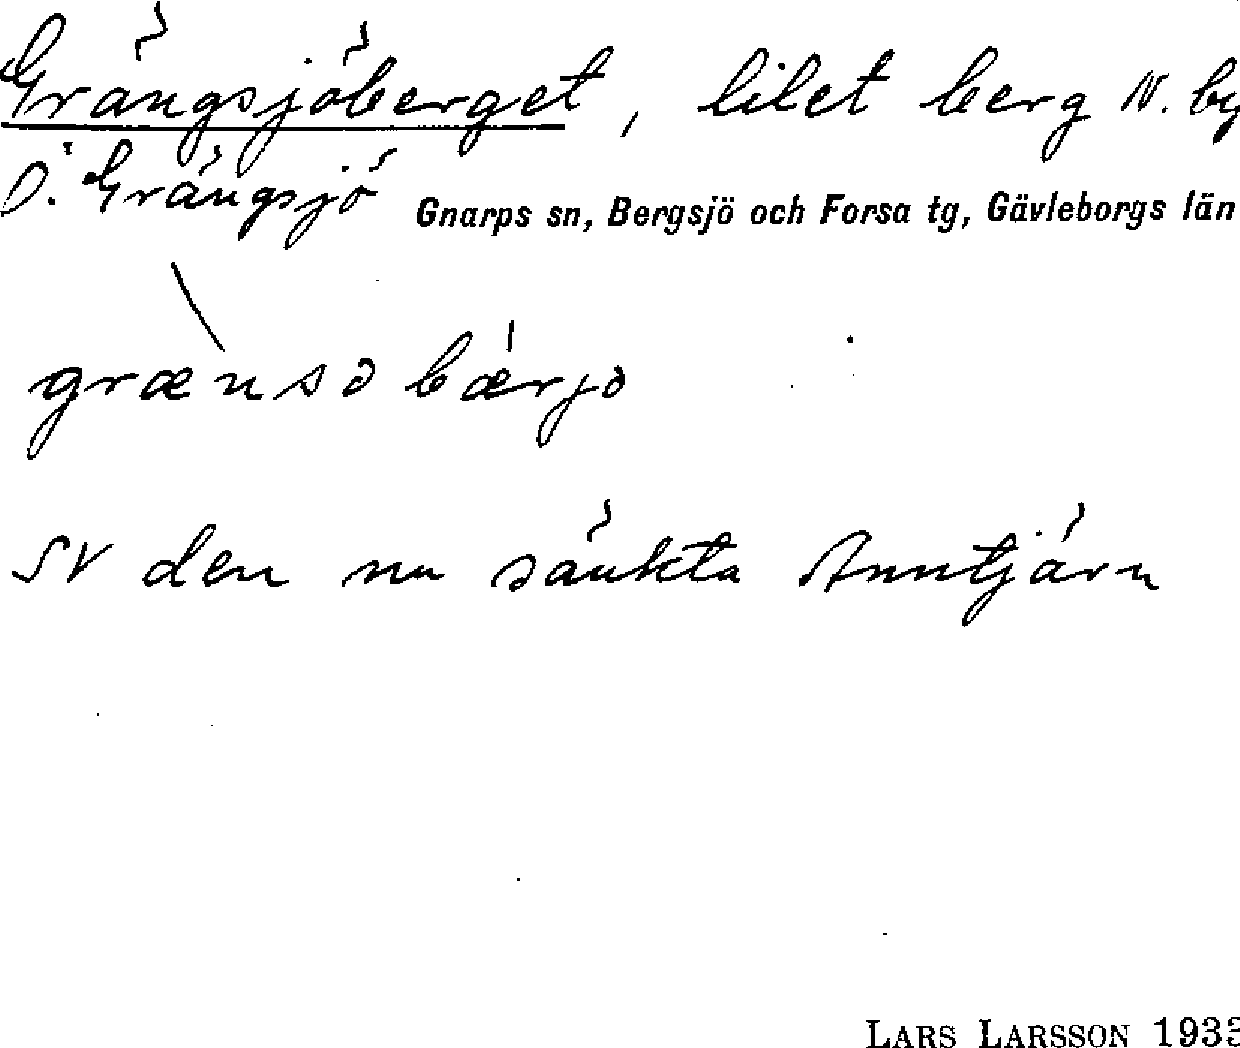 Grängsjöberget, litet berg N. by
Ö. Grängsjö Gnarps sn, Bergsjö och Forsa tg, Gävleborgs län
grænsəbærjə
SV den nu sänkta Anntjärn
LARS LARSSON 1935